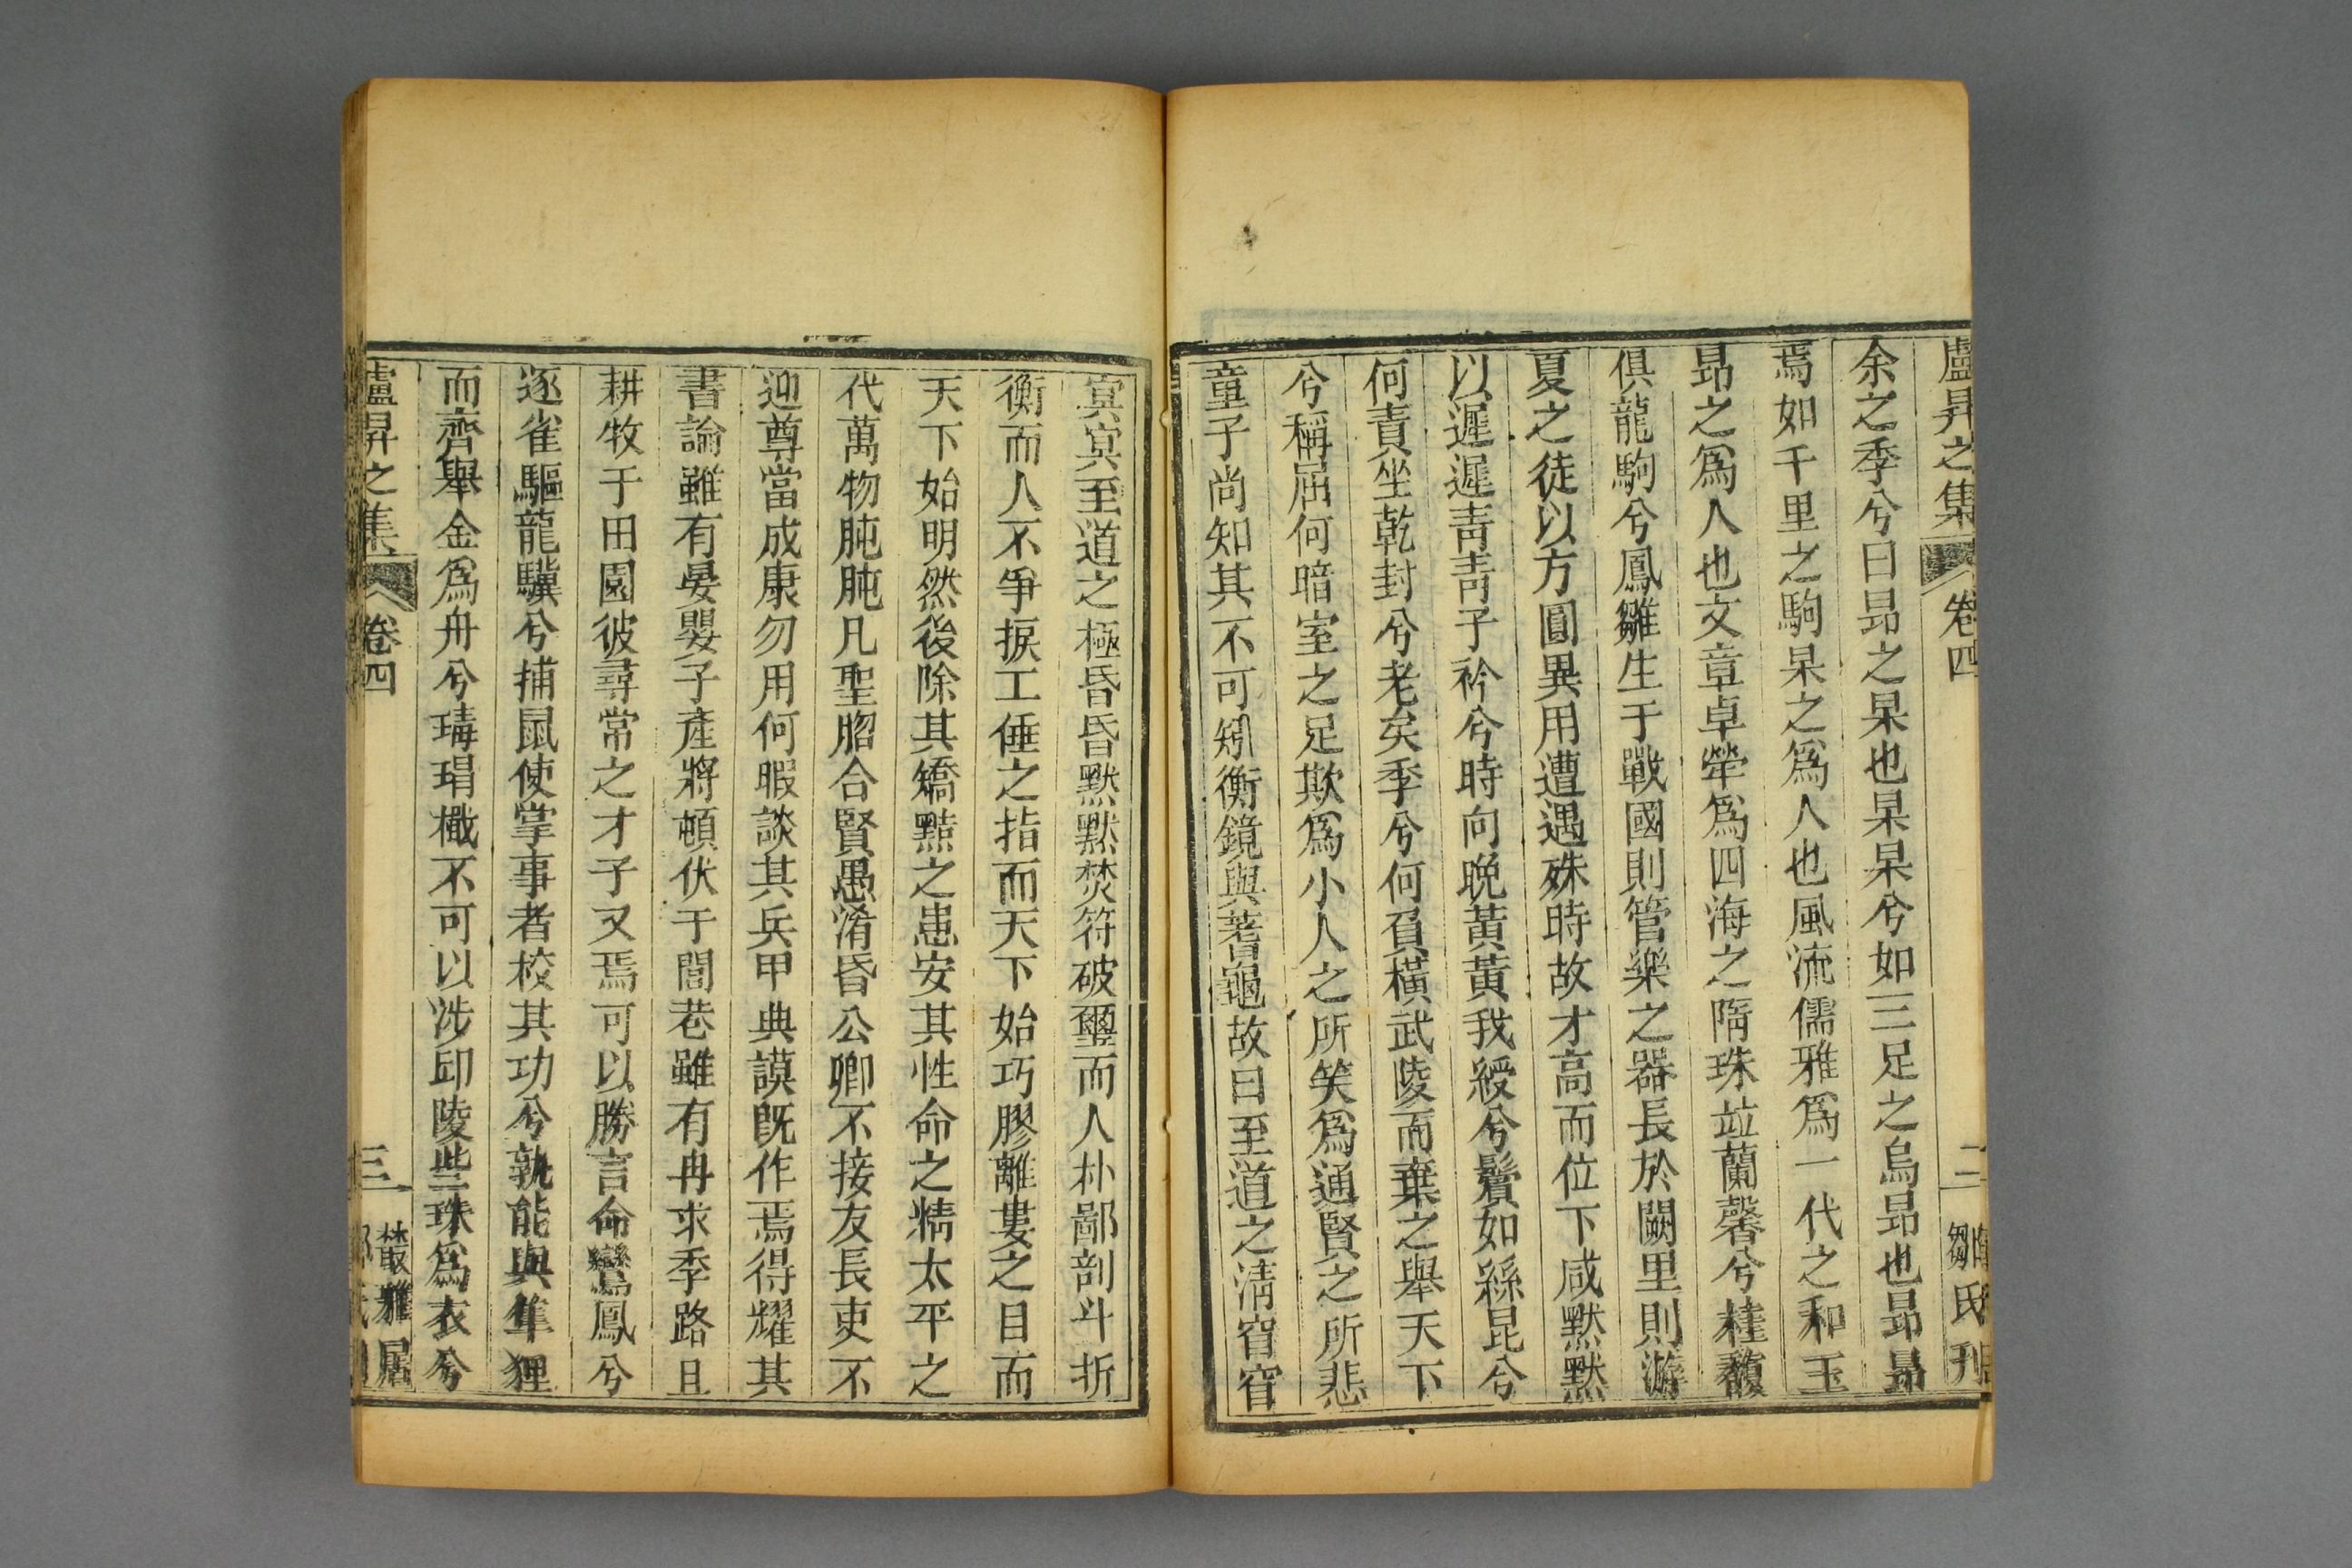 盧昇之集 卷四 二 鄒氏刊
余之季兮曰昂之杲也杲杲兮如三足之烏昂也昂昂
焉如千里之駒杲之爲人也風流儒雅爲一代之和玉
昂之爲人也文章卓犖爲四海之隋珠竝蘭馨兮桂馥
俱龍駒兮鳳雛生于戰國則管樂之器長於闕里則游
夏之徒以方圓異用遭遇殊時故才高而位下咸默默
以遲遲靑靑子衿兮時向晚黃黃我綬兮鬢如絲昆兮
何責坐乾封兮老矣季兮何負橫武陵而棄之舉天下
兮稱屈何暗室之足欺爲小人之所笑爲通賢之所悲
童子尚知其不可矧衡鏡與蓍龜故曰至道之淸窅窅
冥冥至道之極昏昏默默焚符破璽而人朴鄙剖斗折
衡而人不爭捩工倕之指而天下始巧膠離婁之目而
天下始明然後除其矯黠之患安其性命之精太平之
代萬物肫肫凡聖脗合賢愚淆昏公卿不接友長吏不
迎尊當成康勿用何暇談其兵甲典謨旣作焉得耀其
書論雖有晏嬰子產將頓伏于閭巷雖有冉求季路且
耕牧于田園彼尋常之才子又焉可以勝言命鸞鳳兮
逐雀驅龍驥兮捕鼠使掌事者校其功兮孰能與隼狸
而齊舉金爲舟兮瑇瑁檝不可以涉邱陵些珠爲衣兮
盧昇之集 卷四 三 叢雅居